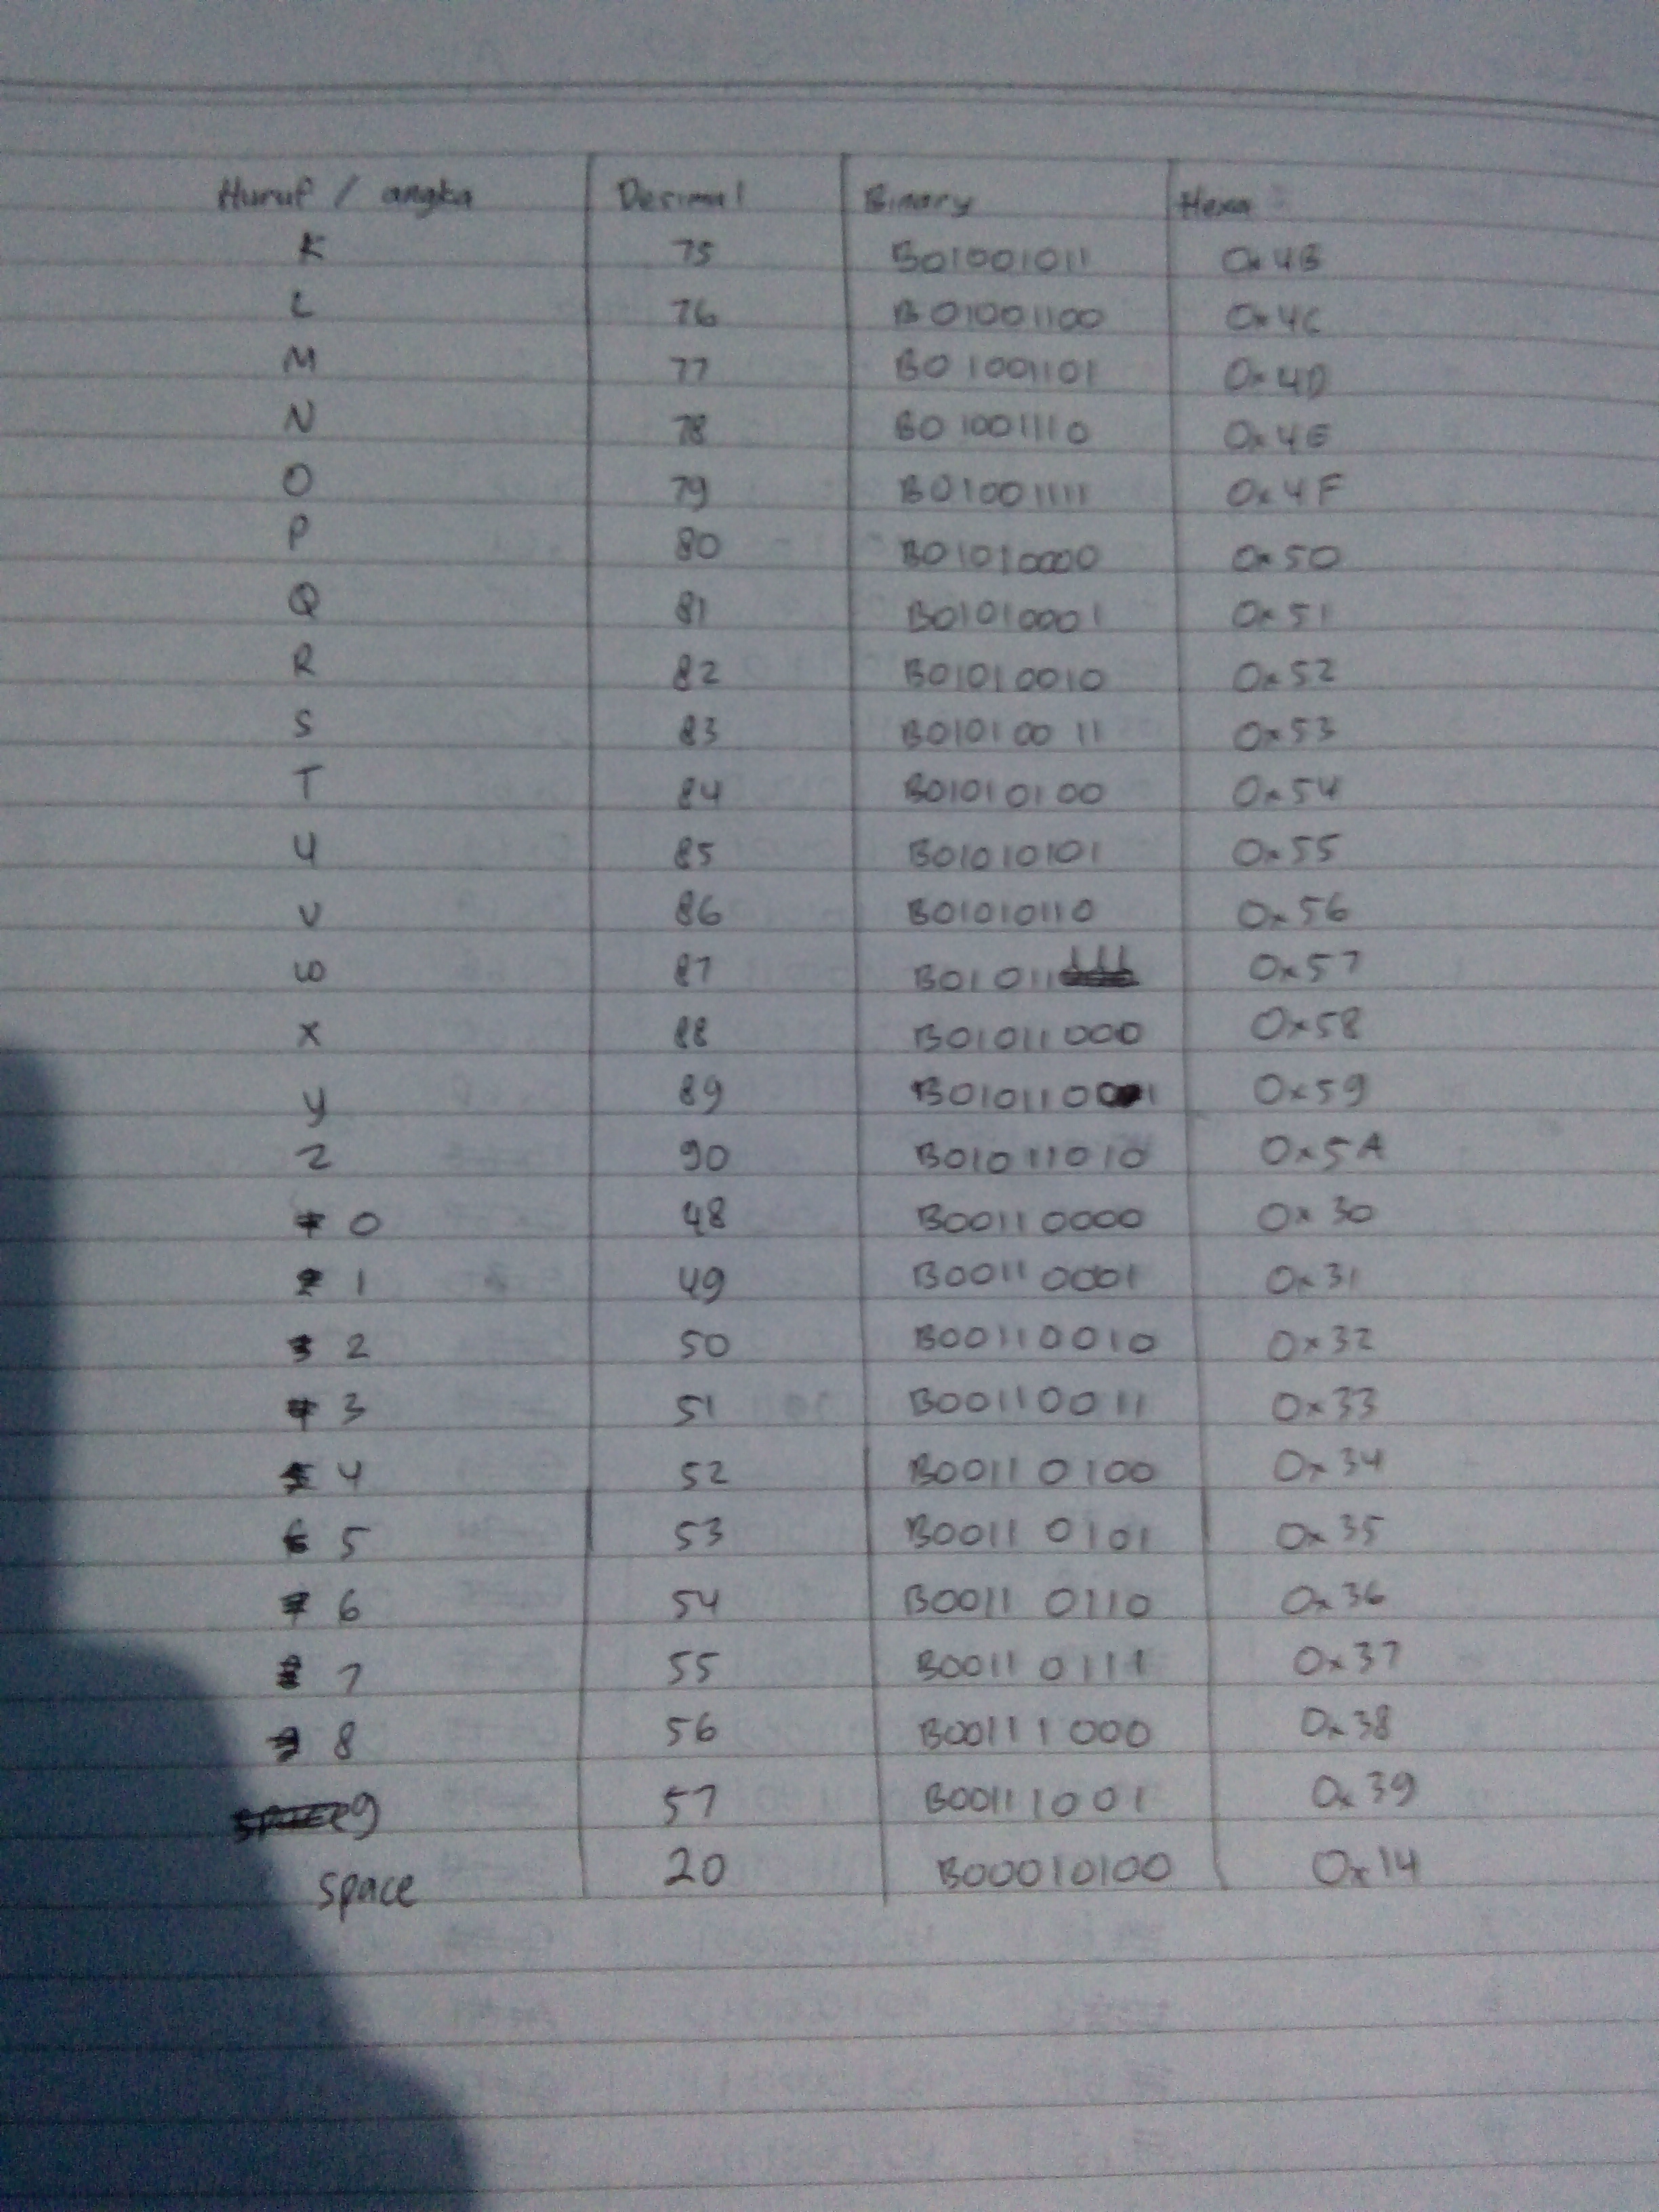 Huruf / angka Desimal Binary Hexa
K 75 B01001011 0x4B
L 76 B01001100 0x4C
M 77 B01001101 0x4D
N 78 B01001110 0x4E
O 79 B01001111 0x4F
P 80 B01010000 0x50
Q 81 B01010001 0x51
R 82 B01010010 0x52
S 83 B01010011 0x53
T 84 B01010100 0x54
U 85 B01010101 0x55
V 86 B01010110 0x56
W 87 B01011 0x57
X 88 B01011000 0x58
Y 89 B01011001 0x59
Z 90 B01011010 0x5A
0 48 B00110000 0x30
1 49 B00110001 0x31
2 50 B00110010 0x32
3 51 B00110011 0x33
4 52 B00110100 0x34
5 53 B00110101 0x35
6 54 B00110110 0x36
7 55 B00110111 0x37
8 56 B00111000 0x38
9 57 B00111001 0x39
space 20 B00010100 0x14